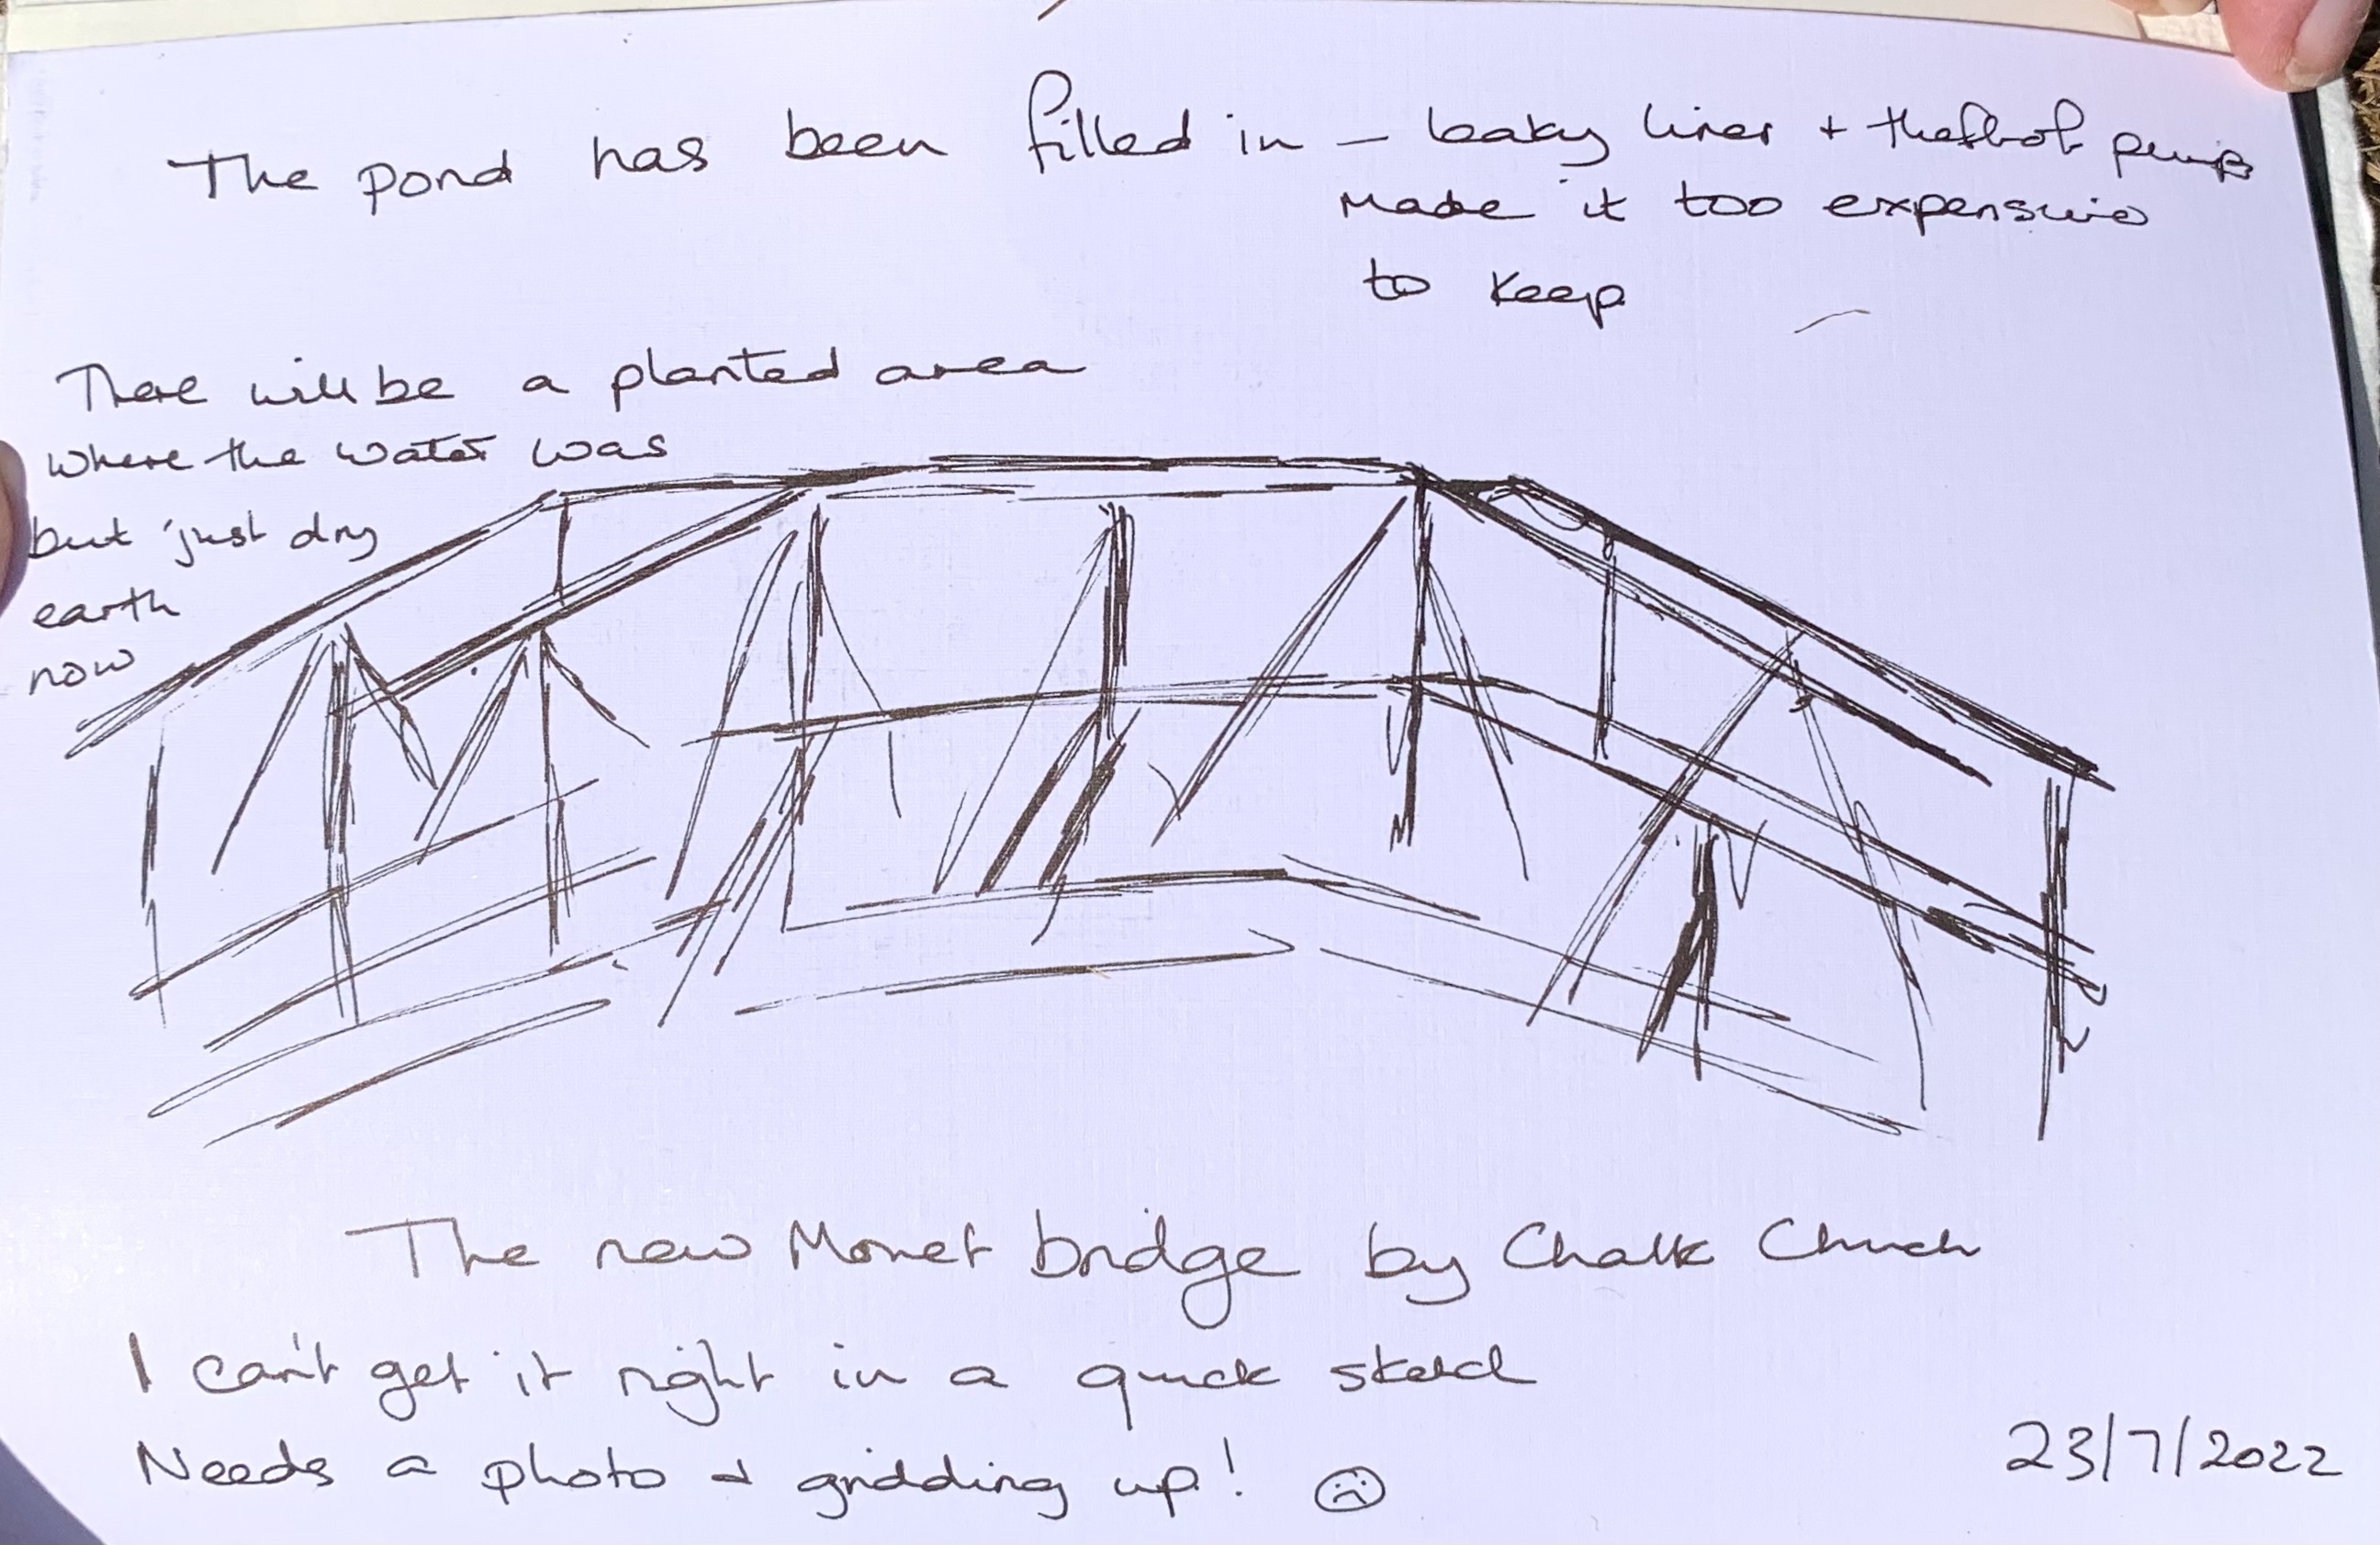 The pond has been filled in – leaky liner + theft of pump
made it too expensive
to keep
There will be a planted area
where the water was
but just dry
earth
now
The new Monet bridge by Chalk Church
I can't get it right in a quick sketch
Needs a photo + gridding up! ☹
23/7/2022